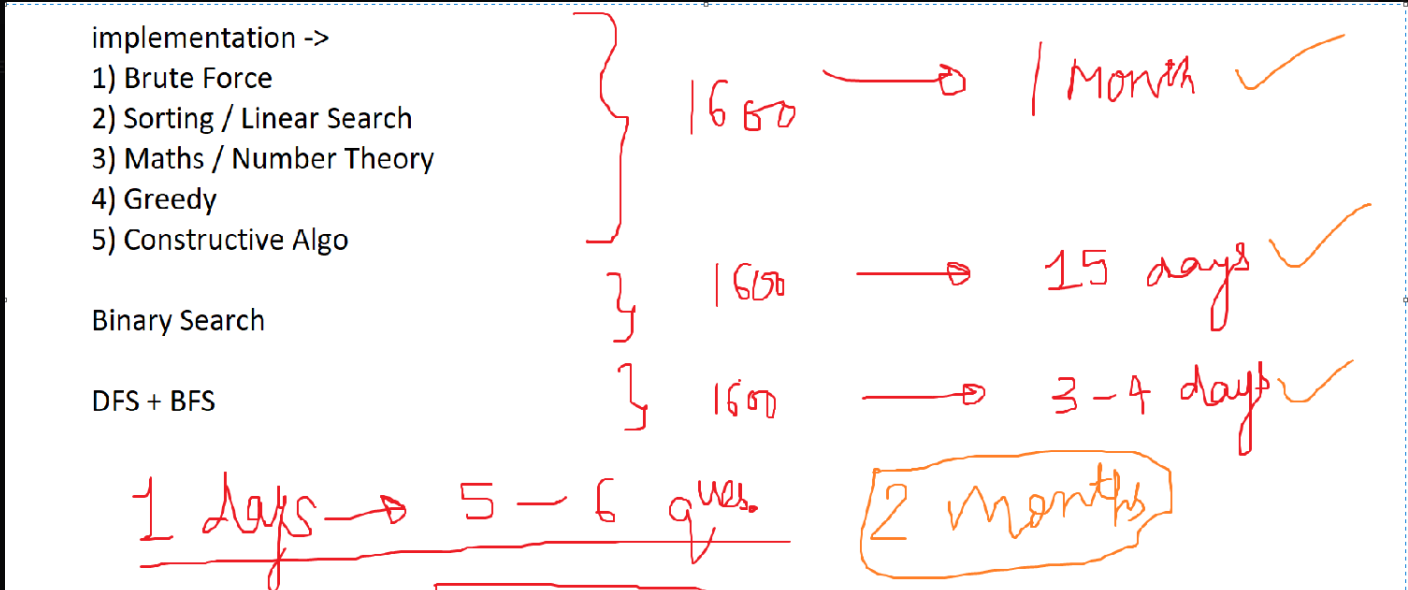 implementation ->
1) Brute Force
2) Sorting / Linear Search
3) Maths / Number Theory
4) Greedy
5) Constructive Algo
1600 → 1 Month ✓
Binary Search
1600 → 15 days ✓
DFS + BFS
1600 → 3-4 days ✓
1 days → 5 - 6 ques.
2 Months